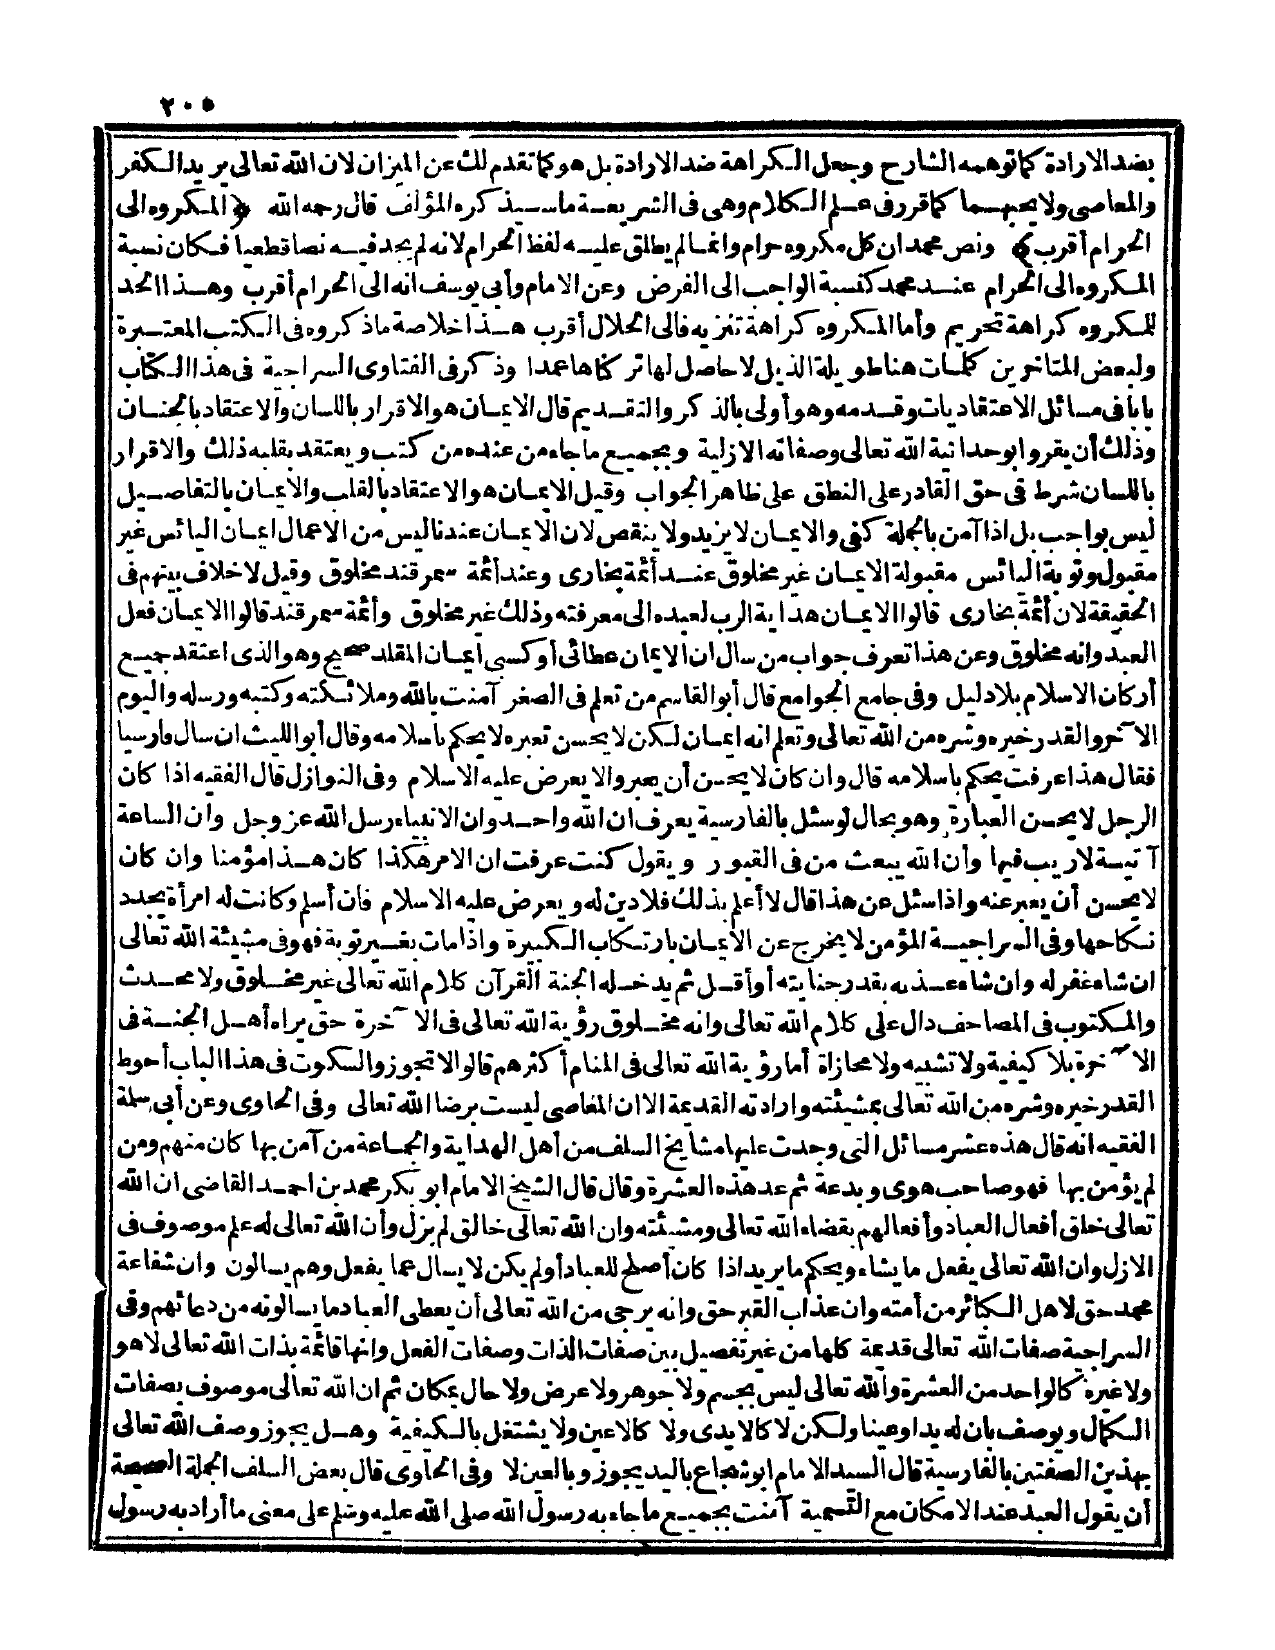 ٢٠٥
بضد الارادة كما توهمه الشارح وجعل الكراهة ضد الارادة بل هو كما تقدم لك عن الميزان لان الله تعالى يريد الكفر
والمعاصي ولا يحبهما كما قرر في علم الكلام وهى فى الشريعة ما سيذكره المؤلف قال رحمه الله ﴿المكروه الى
الحرام أقرب﴾ ونص محمد ان كل مكروه حرام وانما لم يطلق عليه لفظ الحرام لانه لم يجد فيه نصا قطعيا فكان نسبة
المكروه الى الحرام عند محمد كنسبة الواجب الى الفرض وعن الامام وأبي يوسف انه الى الحرام أقرب وهذا الحد
للمكروه كراهة تحريم وأما المكروه كراهة تنزيه فالى الحلال أقرب هذا خلاصة ماذكروه فى الكتب المعتبرة
ولبعض المتاخرين كلمات هنا طويلة الذيل لا حاصل لها تركناها عمدا وذكر فى الفتاوى السراجية فى هذا الكتاب
بابا فى مسائل الاعتقاديات وقدمه وهو أولى بالذكر والتقديم قال الايمان هو الاقرار باللسان والاعتقاد بالجنان
وذلك أن يقروا بوحدانية الله تعالى وصفاته الازلية وبجميع ماجاء من عنده من كتب ويعتقد بقلبه ذلك والاقرار
باللسان شرط فى حق القادر على النطق على ظاهر الجواب وقيل الايمان هو الاعتقاد بالقلب والايمان بالتفاصيل
ليس بواجب بل اذا آمن بالجملة كفى والايمان لا يزيد ولا ينقص لان الايمان عندنا ليس من الاعمال ايمان اليائس غير
مقبول وتوبة اليائس مقبولة الايمان غير مخلوق عند أئمة بخارى وعند أئمة سمرقند مخلوق وقيل لا خلاف بينهم فى
الحقيقة لان أئمة بخارى قالوا الايمان هداية الرب لعبده الى معرفته وذلك غير مخلوق وأئمة سمرقند قالوا الايمان فعل
العبد وانه مخلوق وعن هذا تعرف جواب من سال ان الايمان عطائى أو كسبى ايمان المقلد صحيح وهو الذى اعتقد جميع
أركان الاسلام بلا دليل وفى جامع الجوامع قال أبو القاسم من تعلم فى الصغر آمنت بالله وملائكته وكتبه ورسله واليوم
الآخر والقدر خيره وشره من الله تعالى وتعلم انه ايمان لكن لا يحسن تعبره لا يحكم باسلامه وقال أبو الليث ان سال فارسيا
فقال هذا عرفت يحكم باسلامه قال وان كان لا يحسن أن يعبر والا يعرض عليه الاسلام وفى النوازل قال الفقيه اذا كان
الرجل لا يحسن العبارة وهو بحال لو سئل بالفارسية يعرف ان الله واحد وان الانبياء رسل الله عز وجل وان الساعة
آتية لاريب فيها وأن الله يبعث من فى القبور ويقول كنت عرفت ان الامر هكذا كان هذا مؤمنا وان كان
لا يحسن أن يعبر عنه واذا سئل عن هذا قال لا أعلم بذلك فلا دين له ويعرض عليه الاسلام فان أسلم وكانت له امرأة يجدد
نكاحها وفى السراجية المؤمن لا يخرج عن الايمان بارتكاب الكبيرة واذا مات بغير توبة فهو فى مشيئة الله تعالى
ان شاء غفر له وان شاء عذبه بقدر جنايته أو أقل ثم يدخله الجنة القرآن كلام الله تعالى غير مخلوق ولا محدث
والمكتوب فى المصاحف دال على كلام الله تعالى وانه مخلوق رؤية الله تعالى فى الآخرة حق يراه أهل الجنة فى
الآخرة بلا كيفية ولا تشبيه ولا محازاة أما رؤية الله تعالى فى المنام أكثرهم قالوا لا تجوز والسكوت فى هذا الباب أحوط
القدر خيره وشره من الله تعالى بمشيئته وارادته القديمة الا ان المعاصى ليست برضا الله تعالى وفى الحاوى وعن أبى سلمة
الفقيه انه قال هذه عشر مسائل التى وجدت عليها مشايخ السلف من أهل الهداية والجماعة من آمن بها كان منهم ومن
لم يؤمن بها فهو صاحب هوى وبدعة ثم عد هذه العشرة وقال قال الشيخ الامام ابو بكر محمد بن احمد القاضى ان الله
تعالى خلق أفعال العباد وأفعالهم بقضاء الله تعالى ومشيئته وان الله تعالى خالق لم يزل وأن الله تعالى له علم موصوف فى
الازل وان الله تعالى يفعل ما يشاء ويحكم ما يريد اذا كان أصلح للعباد أو لم يكن لا يسال عما يفعل وهم يسالون وان شفاعة
محمد حق لاهل الكبائر من أمته وان عذاب القبر حق وانه يرجى من الله تعالى أن يعطى العباد ما يسالونه من دعائهم وفى
السراجية صفات الله تعالى قديمة كلها من غير تفصيل بين صفات الذات وصفات الفعل وانها قائمة بذات الله تعالى لا هو
ولا غيره كالواحد من العشرة والله تعالى ليس بجسم ولا جوهر ولا عرض ولا حال بمكان ثم ان الله تعالى موصوف بصفات
الكمال ويوصف بان له يدا وعينا ولكن لا كالايدى ولا كالاعين ولا يشتغل بالكيفية وهل يجوز وصف الله تعالى
بهذين الصفتين بالفارسية قال السيد الامام ابو شجاع باليد يجوز وبالعين لا وفى الحاوى قال بعض السلف الجملة الصحيحة
أن يقول العبد عند الامكان مع التسمية آمنت بجميع ماجاء به رسول الله صلى الله عليه وسلم على معنى ما أراد به رسول